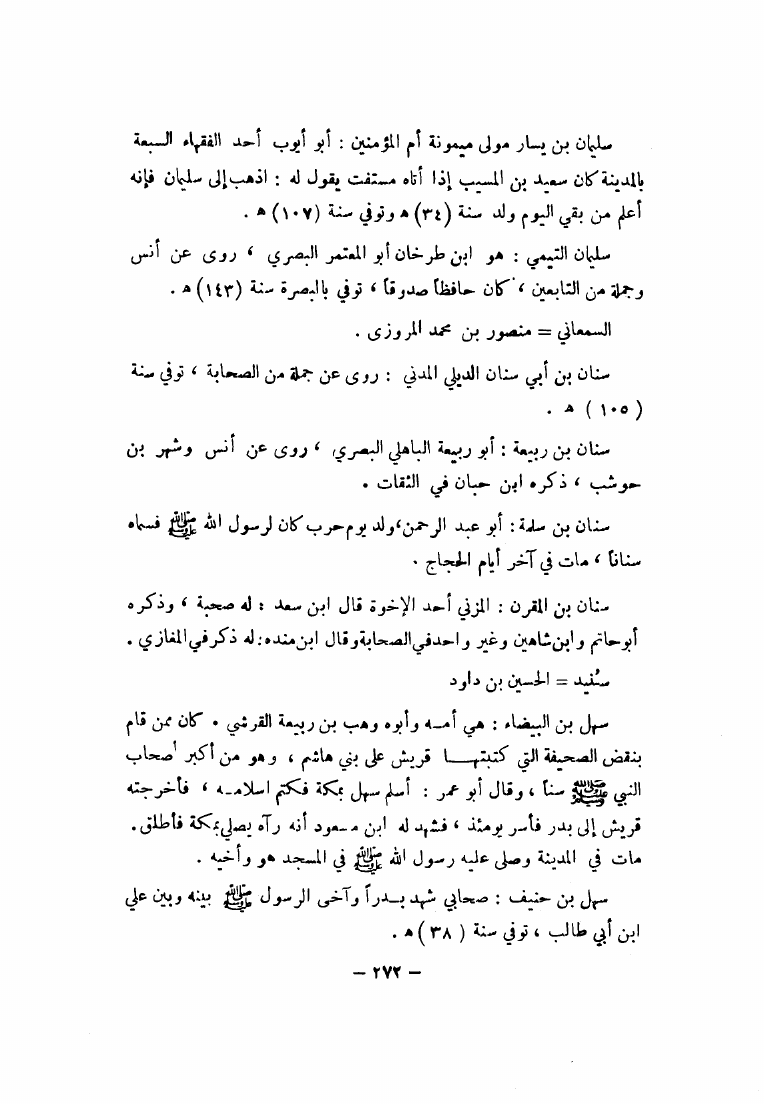 سليمان بن يسار مولى ميمونة أم المؤمنين : أبو أيوب أحد الفقهاء السبعة
بالمدينة كان سعيد بن المسيب إذا أتاه مستفت يقول له : اذهب إلى سليمان فإنه
أعلم من بقي اليوم ولد سنة (٣٤) ه وتوفي سنة (١٠٧) ه .
سليمان التيمي : هو ابن طرخان أبو المعتمر البصري ، روى عن أنس
وجملة من التابعين ، كان حافظاً صدوقاً ، توفي بالبصرة سنة (١٤٣) ه .
السمعاني = منصور بن محمد المروزى .
سنان بن أبي سنان الديلي المدني : روى عن جملة من الصحابة ، توفي سنة
( ١٠٥ ) ه .
سنان بن ربيعة : أبو ربيعة الباهلي البصري ، روى عن أنس وشهر بن
حوشب ، ذكره ابن حبان في الثقات .
سنان بن سلمة : أبو عبد الرحمن، ولد يوم حرب كان لرسول الله ﷺ فسماه
سناناً ، مات في آخر أيام الحجاج .
سنان بن المقرن : المزني أحد الإخوة قال ابن سعد : له صحبة ، وذكره
أبو حاتم وابن شاهين وغير واحد في الصحابة وقال ابن منده : له ذكر في المغازي .
سُنيد = الحسين بن داود
سهل بن البيضاء : هي أمه وأبوه وهب بن ربيعة القرشي . كان ممن قام
بنقض الصحيفة التي كتبتها قريش على بني هاشم ، وهو من أكبر أصحاب
النبي ﷺ سناً ، وقال أبو عمر : أسلم سهل بمكة فكتم اسلامه ، فأخرجته
قريش إلى بدر فأسر يومئذ ، فشهد له ابن مسعود أنه رآه يصلي بمكة فأطلق .
مات في المدينة وصلى عليه رسول الله ﷺ في المسجد هو وأخيه .
سهل بن حنيف : صحابي شهد بدراً وآخى الرسول ﷺ بينه وبين علي
ابن أبي طالب ، توفي سنة ( ٣٨ ) ه .
– ٢٧٢ –